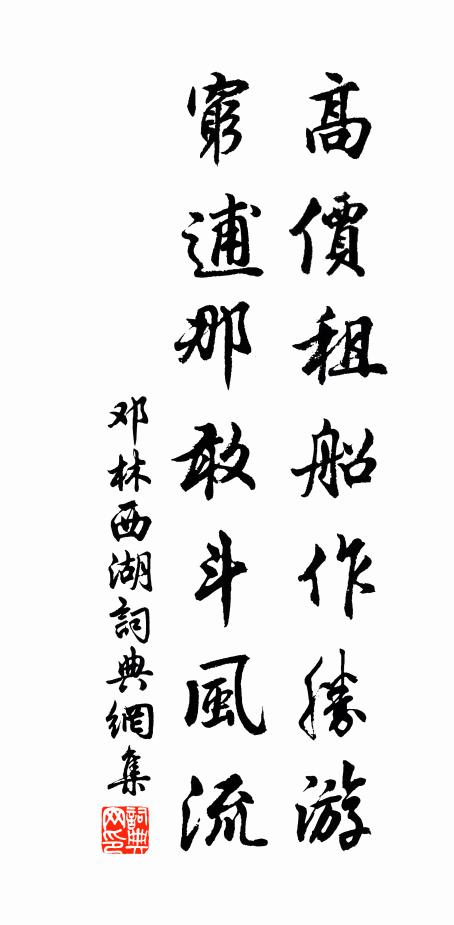 高價租船作勝游
窮逋那敢斗風流
邓林西湖詞典網集
詞典网印